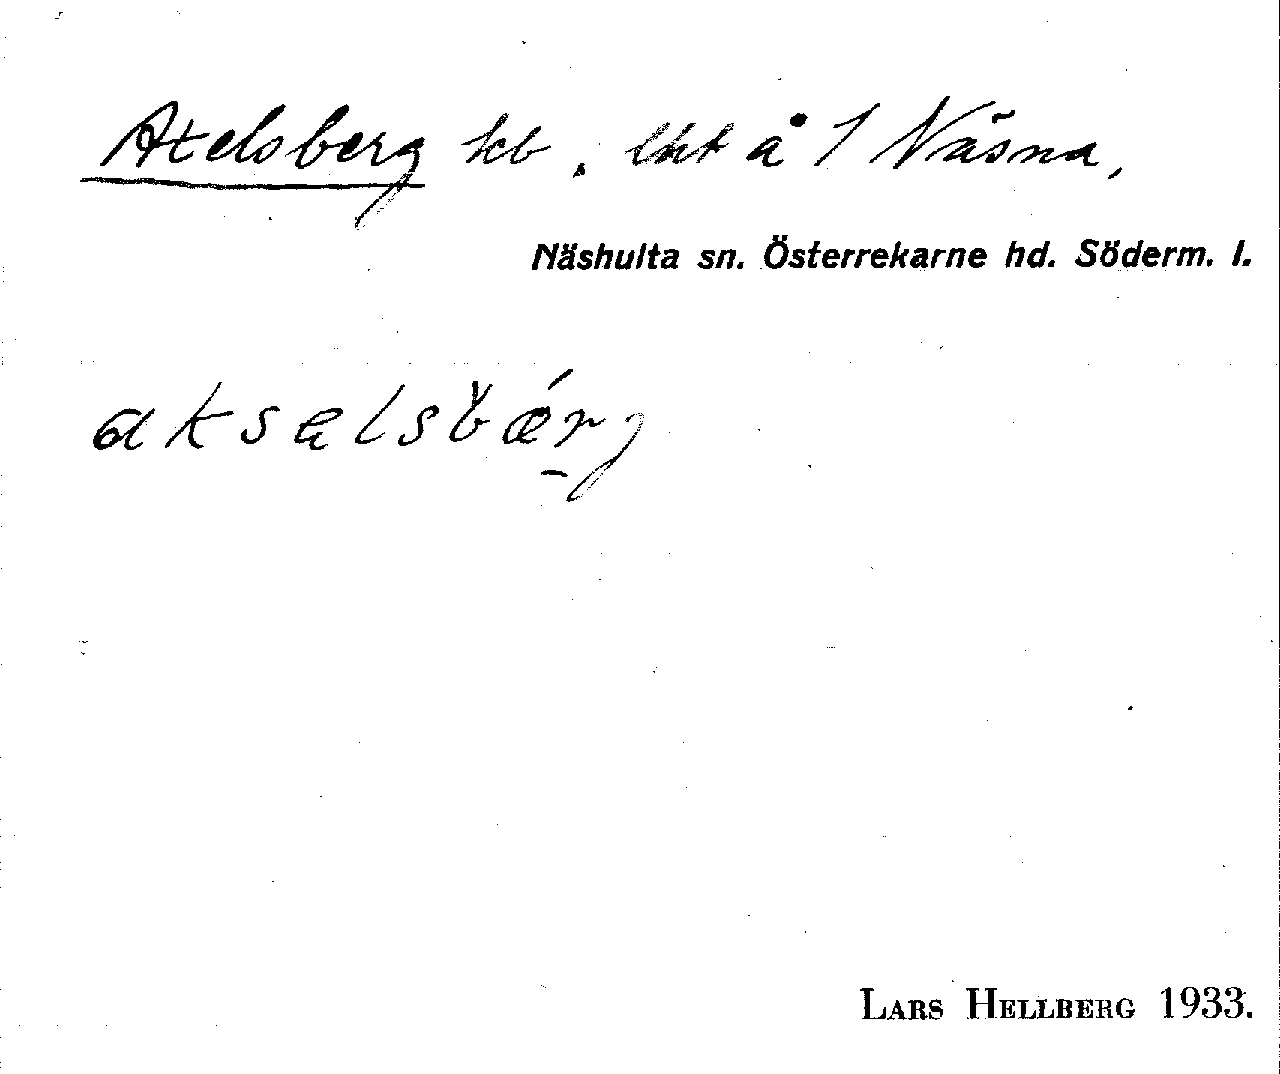 Axelsberg hb. lht å 1 Näsna,
Näshulta sn. Österrekarne hd. Söderm. l.
aksəlsbǽrj
LARS HELLBERG 1933.